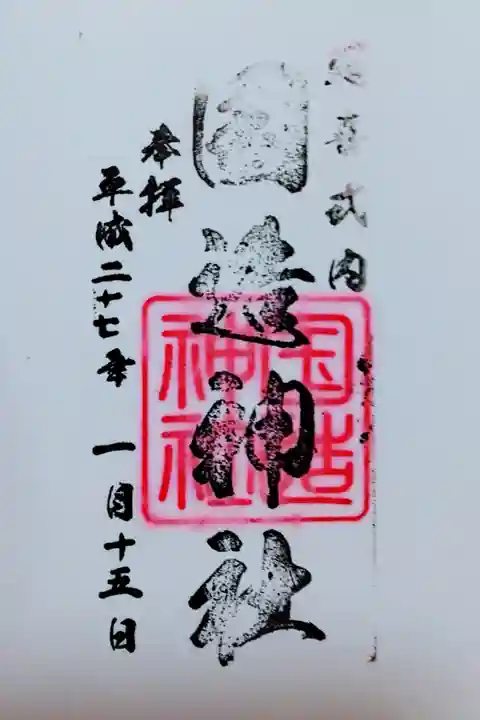 延喜式内
國造神社
国造
神社
奉拝
平成二十七年 一月十五日